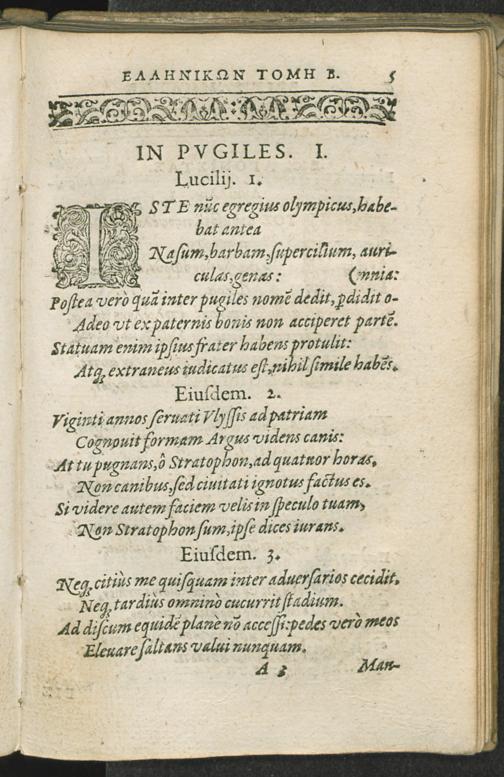 ΕΛΛΗΝΙΚΩΝ ΤΟΜΗ Β. 5
IN PVGILES. I.
Lucilij. 1.
ISTE nũc egregius olympicus, habe-
bat antea
Nasum, barbam, supercilium, auri-
culas, genas: (mnia:
Postea verò quã inter pugiles nomẽ dedit, ꝑdidit o-
Adeo vt ex paternis bonis non acciperet partẽ.
Statuam enim ipsius frater habens protulit:
Atq; extraneus iudicatus est, nihil simile habẽs.
Eiusdem. 2.
Viginti annos seruati Vlyssis ad patriam
Cognouit formam Argus videns canis:
At tu pugnans, ô Stratophon, ad quatuor horas,
Non canibus, sed ciuitati ignotus factus es.
Si videre autem faciem velis in speculo tuam,
Non Stratophon sum, ipse dices iurans.
Eiusdem. 3.
Neq; citiùs me quisquam inter aduersarios cecidit,
Neq; tardiùs omninò cucurrit stadium.
Ad discum equidẽ planè nõ accessi: pedes verò meos
Eleuare saltans valui nunquam.
A 3 Man-